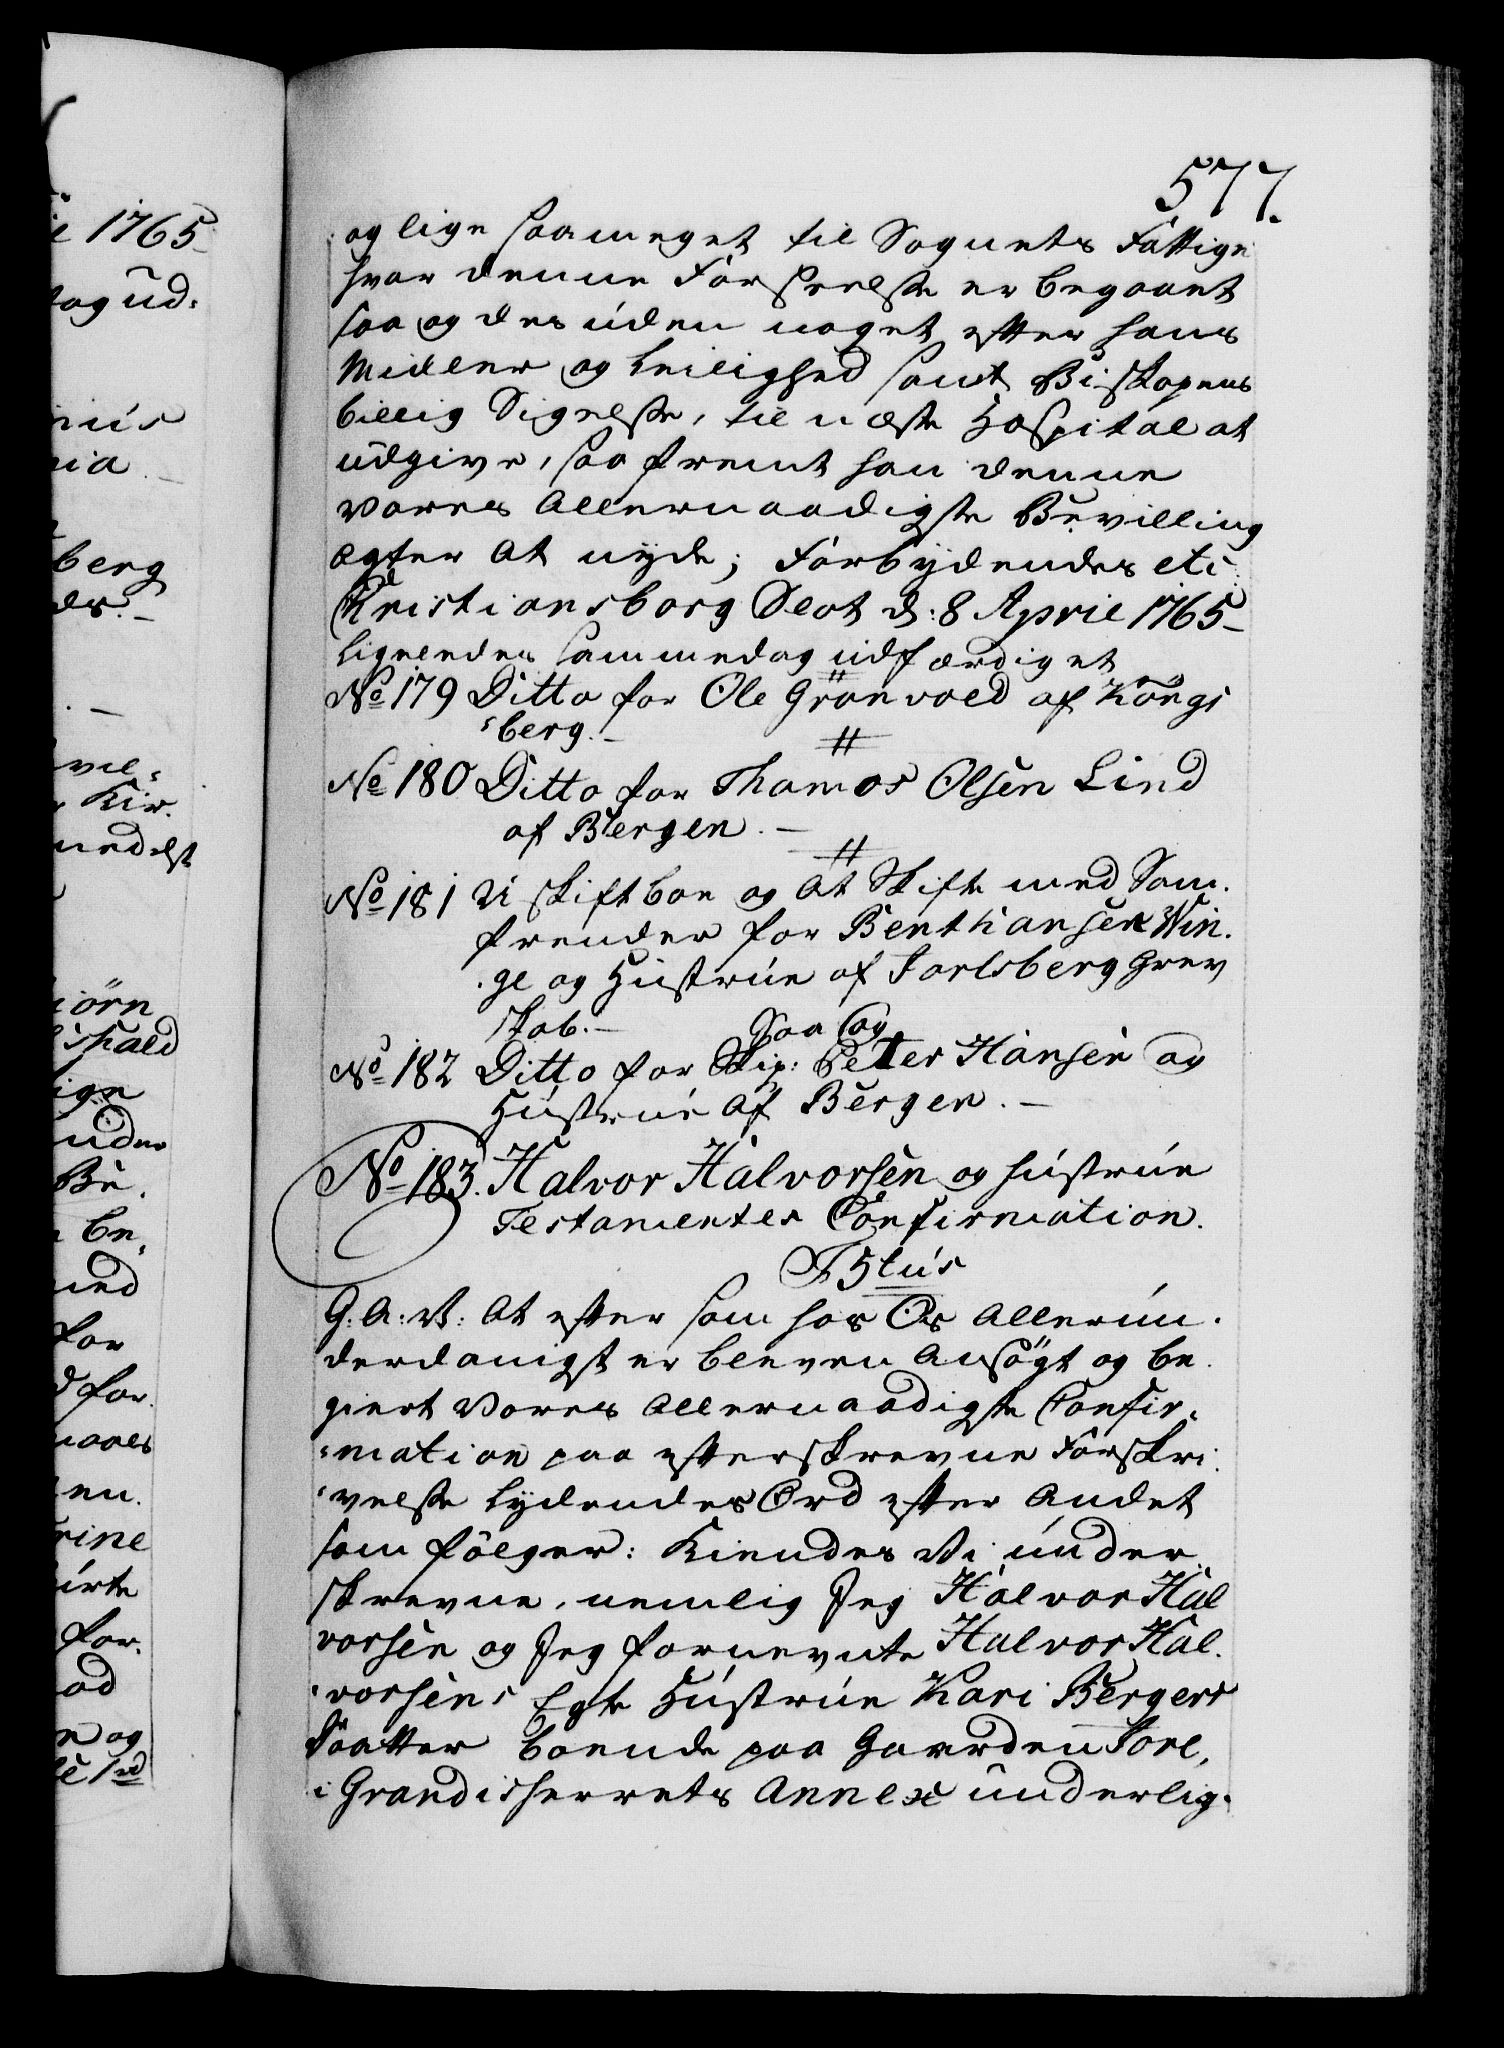 577.
og lige saameget til Sognets Fattige
hvor denne Forseelse er begaaet
saa og des uden noget efter hans
Midler og Leilighed samt Biskopens
billig Sigelse, til næste Hospital at
udgive, saa fremt han denne
Vores Allernaadigste Bevilling
agter at nyde; Forbydendes etc
Christiansborg Slot d: 8 April 1765 –
Ligelendes sammedag udfærdiget
No 179 Ditto for Ole Grönvold af Kongs
berg. –
No 180 Ditto for Thomas Olsen Lind
af Bergen. –
No 181 Uskiftboe og at Skifte med Sam.
frender for Bent Hansen Win.
ge og Hustrue af Jarlsberg Grev
skab. –
Saa og
No 182 Ditto for Skip: Peter Hansen og
Hustrue af Bergen. –
No 183. Halvor Halvorsen og Hustrue
Testamentes Confirmation.
F 5tus
G: A: V: At efter som hos Os allerun.
derdanigst er bleven Ansögt og be.
giert Vores Allernaadigste Confir.
mation paa efterskrevne Forskri.
velse lydendes Ord efter Andet
som fölger: Kiendes Vi under.
skrevne, nemlig Jeg Halvor Hal
vorsen og Jeg fornevnte Halvor Hal.
vorsens Egte Hustrue Kari Bergers
Daatter boende paa Gaarden Tore,
i Grandisherrets Annex underlig.
1765
tog ud.
berg
des. –
vil.
Kir.
for
d for.
en.
rine
for.
ad
og